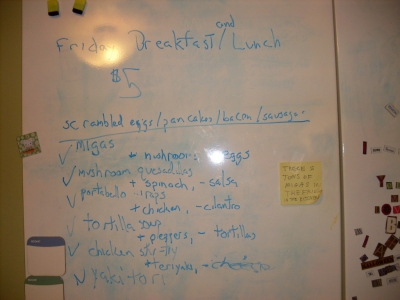 Friday Breakfast/ and Lunch
$5
scrambled eggs/pancakes/bacon/sausage
✓ migas
+ mushrooms, - eggs
✓ mushroom quesadillas
+ spinach, - salsa
✓ portabello wraps
+ chicken, - cilantro
✓ tortilla soup
+ peppers, - tortillas
✓ chicken stir-fry
+ teriyaki, -
✓ yakitori
THERE'S